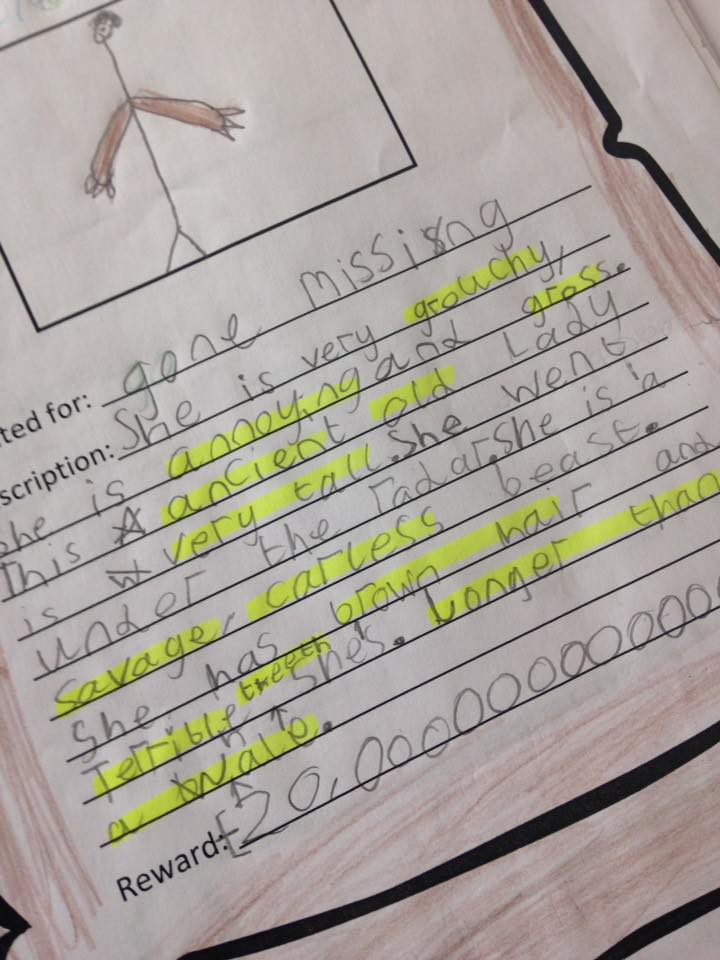 ted for: gone missing
scription: She is very grouchy,
she is annoying and gross.
This ancient old Lady
is very tall. She went
under the radar. She is a
savage, carless beast.
She has brown hair and
Terrible treeth, she's. Longer than
a whale.
Reward: £20,0000000000000